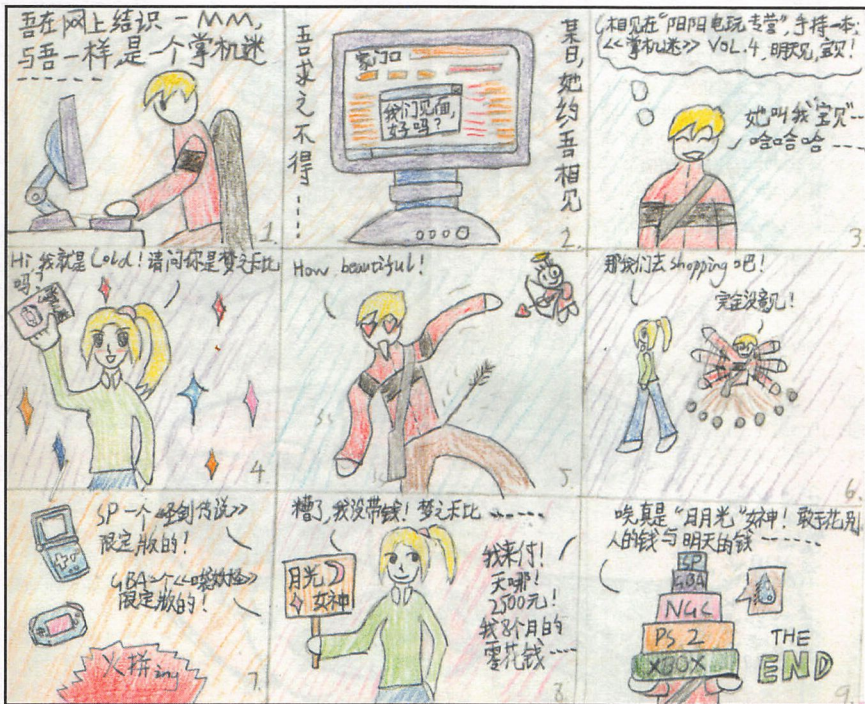 吾在网上结识一MM,
与吾一样,是一个掌机迷
------
1.
吾求之不得……
家门口
我们见面,
好吗?
某日,她约吾相见
2.
相见在“阳阳电玩专营”,手持一本
《掌机迷》VOL.4,明天见,宝贝!
她叫我“宝贝”---
哈哈哈-----
3.
Hi,我就是Cold!请问你是梦之卡比
吗?
4
How beautiful!
5.
那我们去shopping吧!
完全没意见!
6.
SP一个《圣剑传说》
限定版的!
GBA一个
限定版的!
火拼ing
7.
糟了,我没带钱!梦之卡比------
月光
女神
我来付!
天哪!
2500元!
我8个月的
零花钱----
8.
唉,真是“日月光”女神!敢于花别
人的钱与明天的钱------
SP
GBA
NGC
PS2
XBOX
THE
END
9.